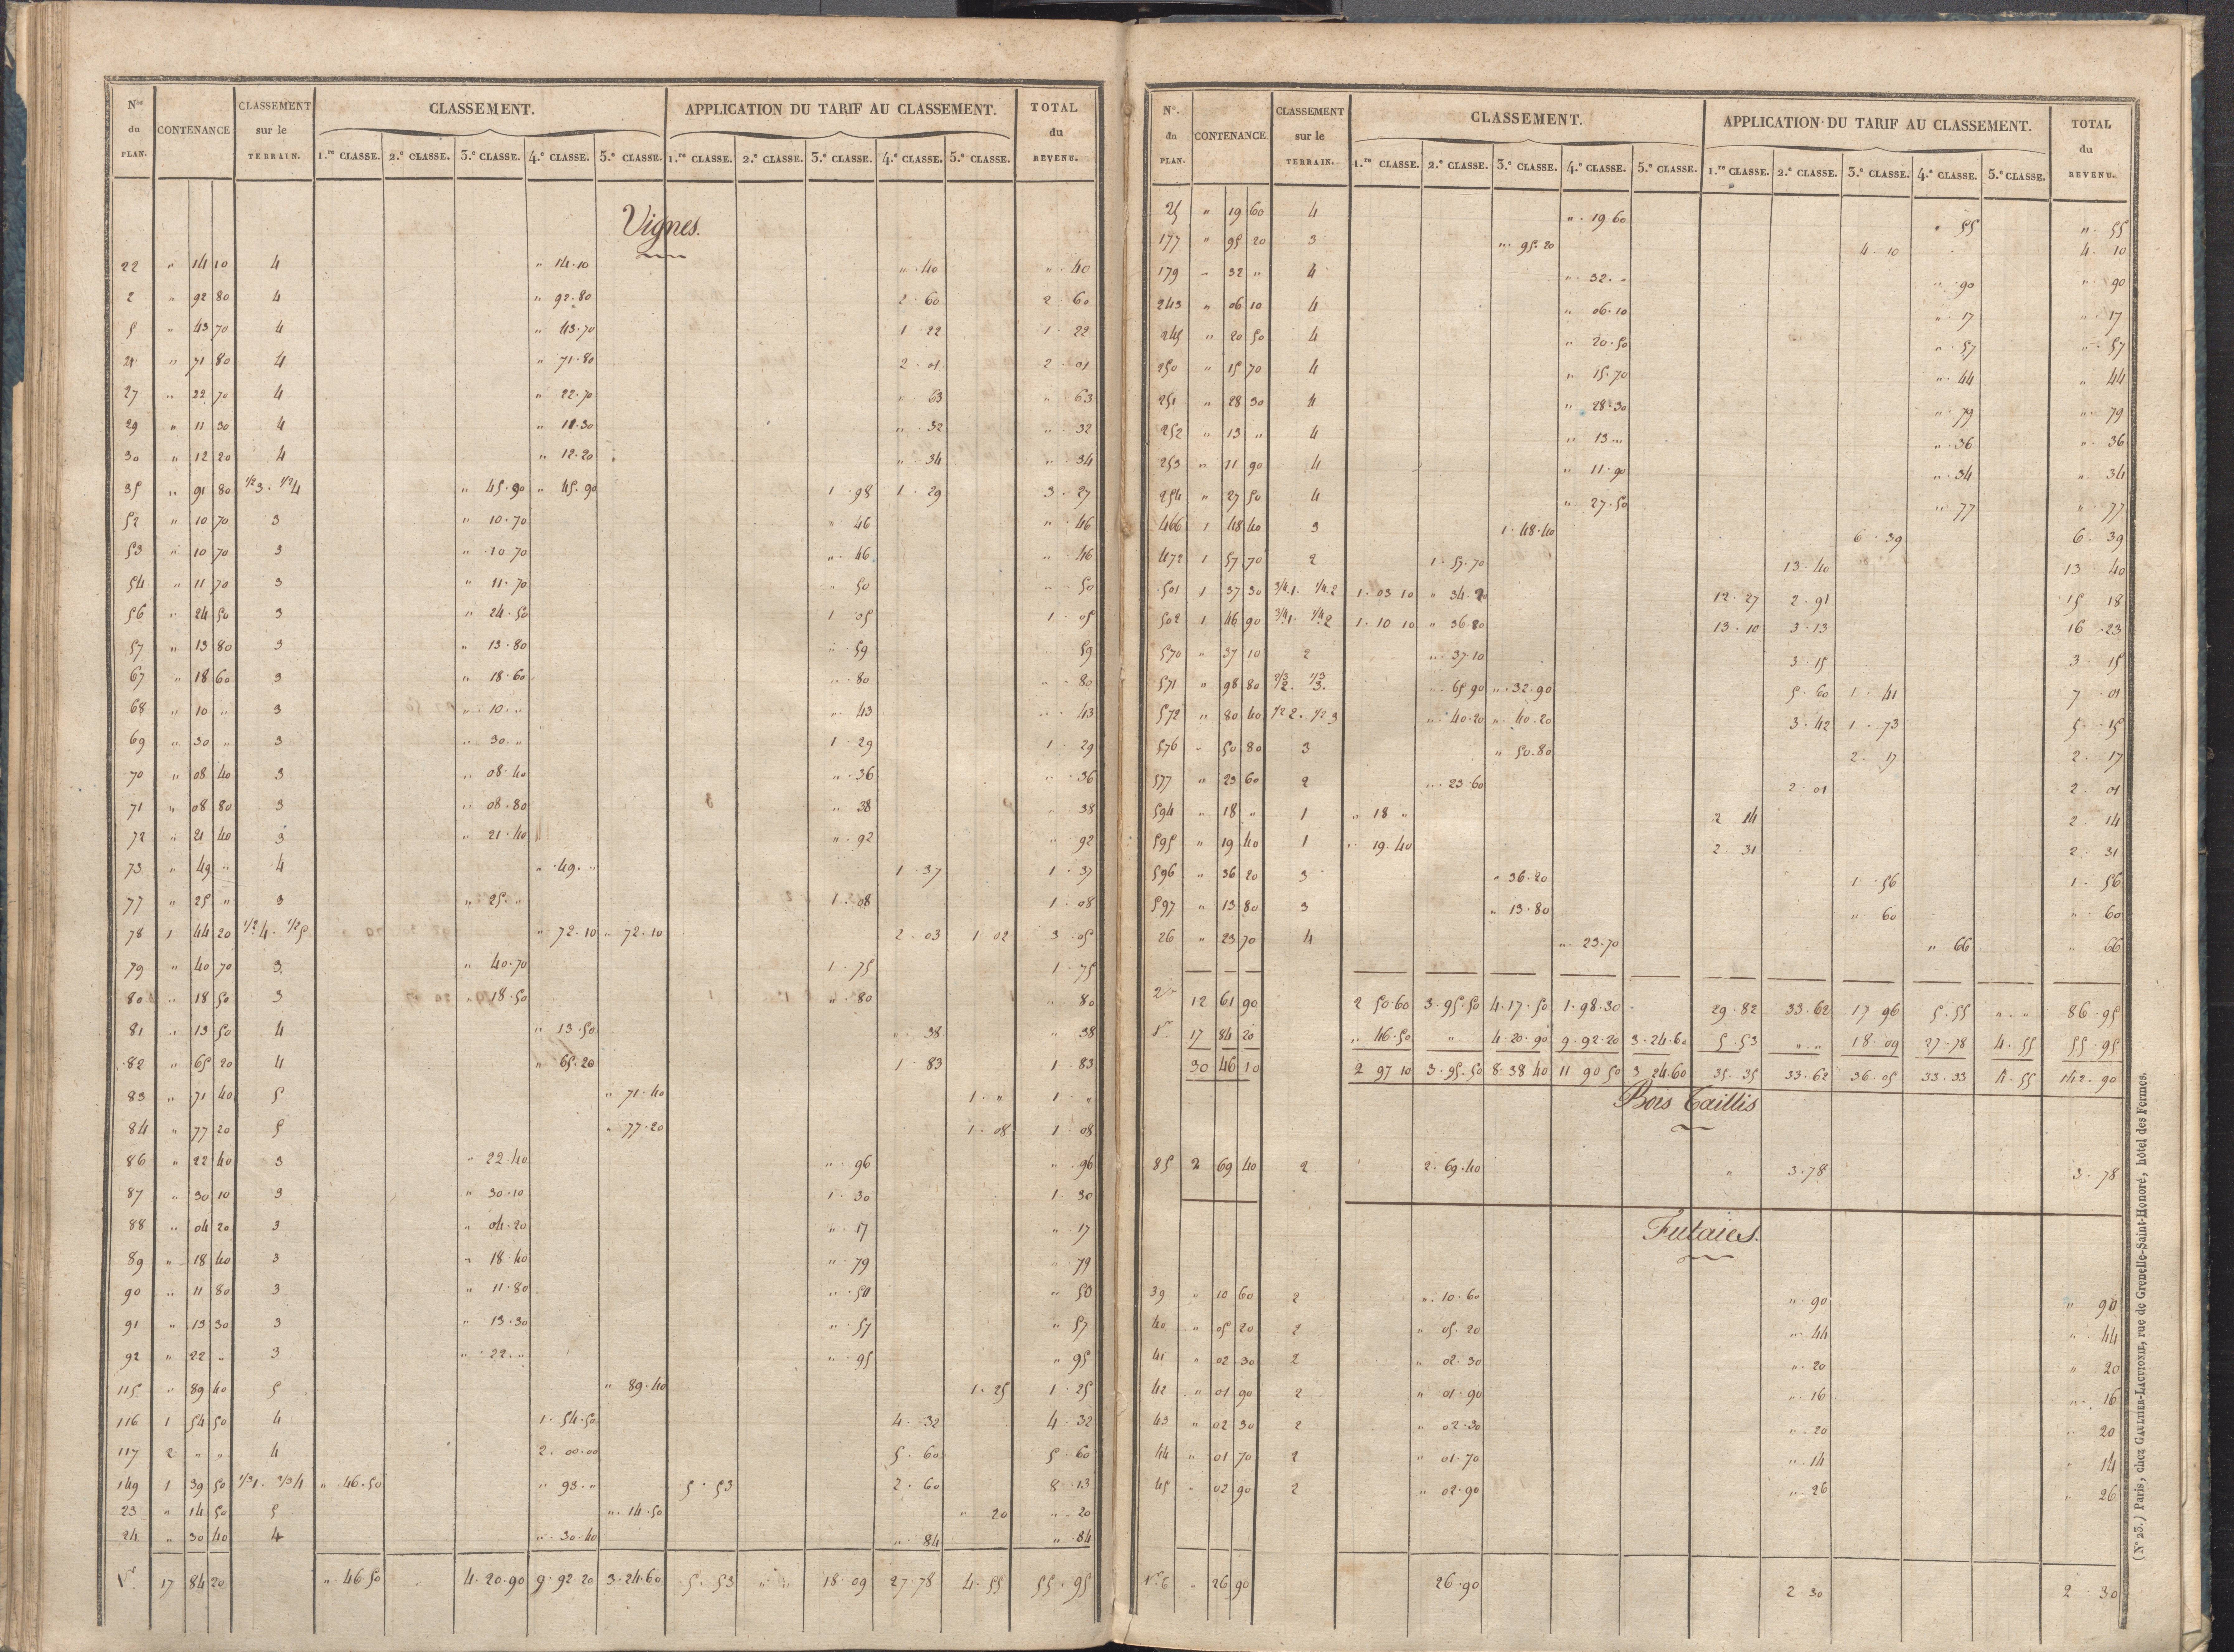 Nos du PLAN. CONTENANCE CLASSEMENT sur le TERRAIN. CLASSEMENT. APPLICATION DU TARIF AU CLASSEMENT. TOTAL du REVENU.
1.re CLASSE. 2.e CLASSE. 3.e CLASSE. 4.e CLASSE. 5.e CLASSE. 1.re CLASSE. 2.e CLASSE. 3.e CLASSE. 4.e CLASSE. 5.e CLASSE.
Vignes.
22 " 14 10 4 " 14.10 " . 40 " . 40
2 " 92 80 4 " 92.80 2 . 60 2 . 60
5 " 43 70 4 " 43.70 1 . 22 1 . 22
21 " 71 80 4 " 71.80 2 . 01 2 . 01
27 " 22 70 4 " 22.70 " 63 " 63
29 " 11 30 4 " 11.30 " . 32 " . 32
30 " 12 20 4 " 12.20 " . 34 " . 34
35 " 91 80 1/2 3 . 1/2 4 " 45.90 " 45.90 1 . 98 1 . 29 3 . 27
52 " 10 70 3 " 10.70 " 46 " . 46
53 " 10 70 3 " 10 70 " . 46 " 46
54 " 11 70 3 " 11.70 " 50 " . 50
56 " 24 50 3 " 24.50 1 . 05 1 . 05
57 " 13 80 3 " 13.80 " . 59 59
67 " 18 60 3 " 18.60 " . 80 " . 80
68 " 10 " 3 " . 10 . " " . 43 " . 43
69 " 30 " 3 " 30 . " 1 . 29 1 . 29
70 " 08 40 3 " 08.40 " . 36 " . 36
71 " 08 80 3 " 08.80 " 38 " 38
72 " 21 40 3 " 21.40 " . 92 " 92
73 " 49 " 4 " . 49 . " 1 . 37 1 . 37
77 " 25 " 3 " 25 . " 1 . 08 1 . 08
78 1 44 20 1/2 4 . 1/2 5 " 72.10 " 72.10 2 . 03 1 02 3 . 05
79 " 40 70 3 " 40.70 1 . 75 1 . 75
80 " 18 50 3 " 18.50 " . 80 " 80
81 " 13 50 4 " 13.50 " . 38 " 38
82 " 65 20 4 " 65.20 1 . 83 1 . 83
83 " 71 40 5 " 71.40 1 . " 1 . "
84 " 77 20 5 " 77.20 1 . 08 1 . 08
86 " 22 40 3 " 22.40 " . 96 " . 96
87 " 30 10 3 " 30.10 1 . 30 1 . 30
88 " 04 20 3 " 04.20 " . 17 " 17
89 " 18 40 3 " 18 40 " . 79 " 79
90 " 11 80 3 " 11.80 " . 50 " 50
91 " 13 30 3 " 13.30 " . 57 " 57
92 " 22 " 3 " . 22 . " " . 95 " 95
115 " 89 40 5 " 89.40 1 . 25 1 . 25
116 1 54 50 4 1.54.50 4 . 32 4 . 32
117 2 " " 4 2.00.00 5 . 60 5 . 60
149 1 39 50 1/3 1 . 2/3 4 " . 46.50 " 93 . " 5 . 53 2 . 60 8 . 13
23 " 14 50 5 " . 14.50 " 20 " . 20
24 " 30 40 4 " . 30.40 " . 84 " . 84
Vr 17 84 20 " . 46.50 4.20.90 9.92 20 3.24.60 5 . 53 " " 18 . 09 27.78 4 . 55 55 . 95
No. du PLAN. CONTENANCE. CLASSEMENT sur le TERRAIN. CLASSEMENT. APPLICATION DU TARIF AU CLASSEMENT. TOTAL du REVENU.
1.re CLASSE. 2.e CLASSE. 3.e CLASSE. 4.e CLASSE. 5.e CLASSE. 1.re CLASSE. 2.e CLASSE. 3.e CLASSE. 4.e CLASSE. 5.e CLASSE.
25 " 19 60 4 " . 19.60 " 55 " . 55
177 " 95 20 3 " . 95.20 4 . 10 4 . 10
179 " 32 " 4 " . 32 . " " . 90 " . 90
243 " 06 10 4 " 06.10 " . 17 " . 17
245 " 20 50 4 " 20.50 " . 57 " . 57
250 " 15 70 4 " 15.70 " . 44 " 44
251 " 28 30 4 " 28.30 " . 79 " . 79
252 " 13 " 4 " 13 . " " . 36 " . 36
253 " 11 90 4 " 11.90 " . 34 " . 34
254 " 27 50 4 " 27.50 " . 77 " . 77
466 1 48 40 3 1.48.40 6 . 39 6 . 39
472 1 57 70 2 1.57.70 13.40 13 40
501 1 37 30 3/4.1. 1/4.2 1.03 10 " 34.20 12.27 2.91 15 18
502 1 46 90 3/4.1. 1/4.2 1.10 10 " 36.80 13.10 3.13 16 .23
570 " 37 10 2 " . 37.10 3.15 3 . 15
571 " 98 80 2/3 2. 1/3 3. " 65 90 " . 32.90 5.60 1 . 41 7 . 01
572 " 80 40 1/2 2 . 1/2 3 " . 40.20 " . 40.20 3.42 1 . 73 5 . 15
576 " 50 80 3 " 50.80 2 . 17 2 . 17
577 " 23 60 2 " . 23.60 2.01 2 . 01
594 " 18 " 1 " 18 " 2 14 2 . 14
595 " 19 40 1 " . 19.40 2.31 2 . 31
596 " 36 20 3 " 36.20 1 . 56 1 . 56
597 " 13 80 3 " 13.80 " . 60 " . 60
26 " 23 70 4 " . 23.70 " 66 " 66
12 61 90 2 50.60 3.95.50 4.17.50 1.98.30 29.82 33.62 17 96 5.55 " . " 86.95
Vr 17 84 20 " 46.50 " 4.20.90 9.92.20 3.24.60 5.53 " . " 18.09 27.78 4.55 55.95
30 46 10 2 97 10 3.95.50 8.38 40 11 90 50 3 24.60 35.35 33.62 36.05 33.33 4.55 142.90
Bois Taillis
85 2 69 40 2 2.69.40 " 3.78 3 . 78
Futaies.
39 " 10 60 2 " . 10.60 " . 90 " 90
40 " 05 20 2 " 05.20 " . 44 " . 44
41 " 02 30 2 " 02.30 " . 20 " 20
42 " 01 90 2 " 01.90 " . 16 " . 16
43 " 02 30 2 " 02.30 " . 20 " 20
44 " 01 70 2 " 01.70 " . 14 " 14
45 " 02 90 2 " 02.90 " . 26 " 26
" 26 90 26.90 2.30 2 . 30
(No 23.) Paris, chez GAULTIER-LAGUIONIE, rue de Grenelle-Saint-Honoré, hôtel des Fermes.